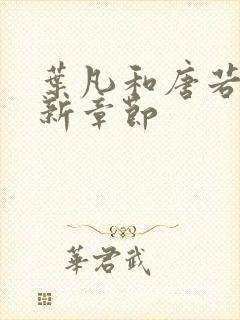 葉凡和唐若
新章節
華君武